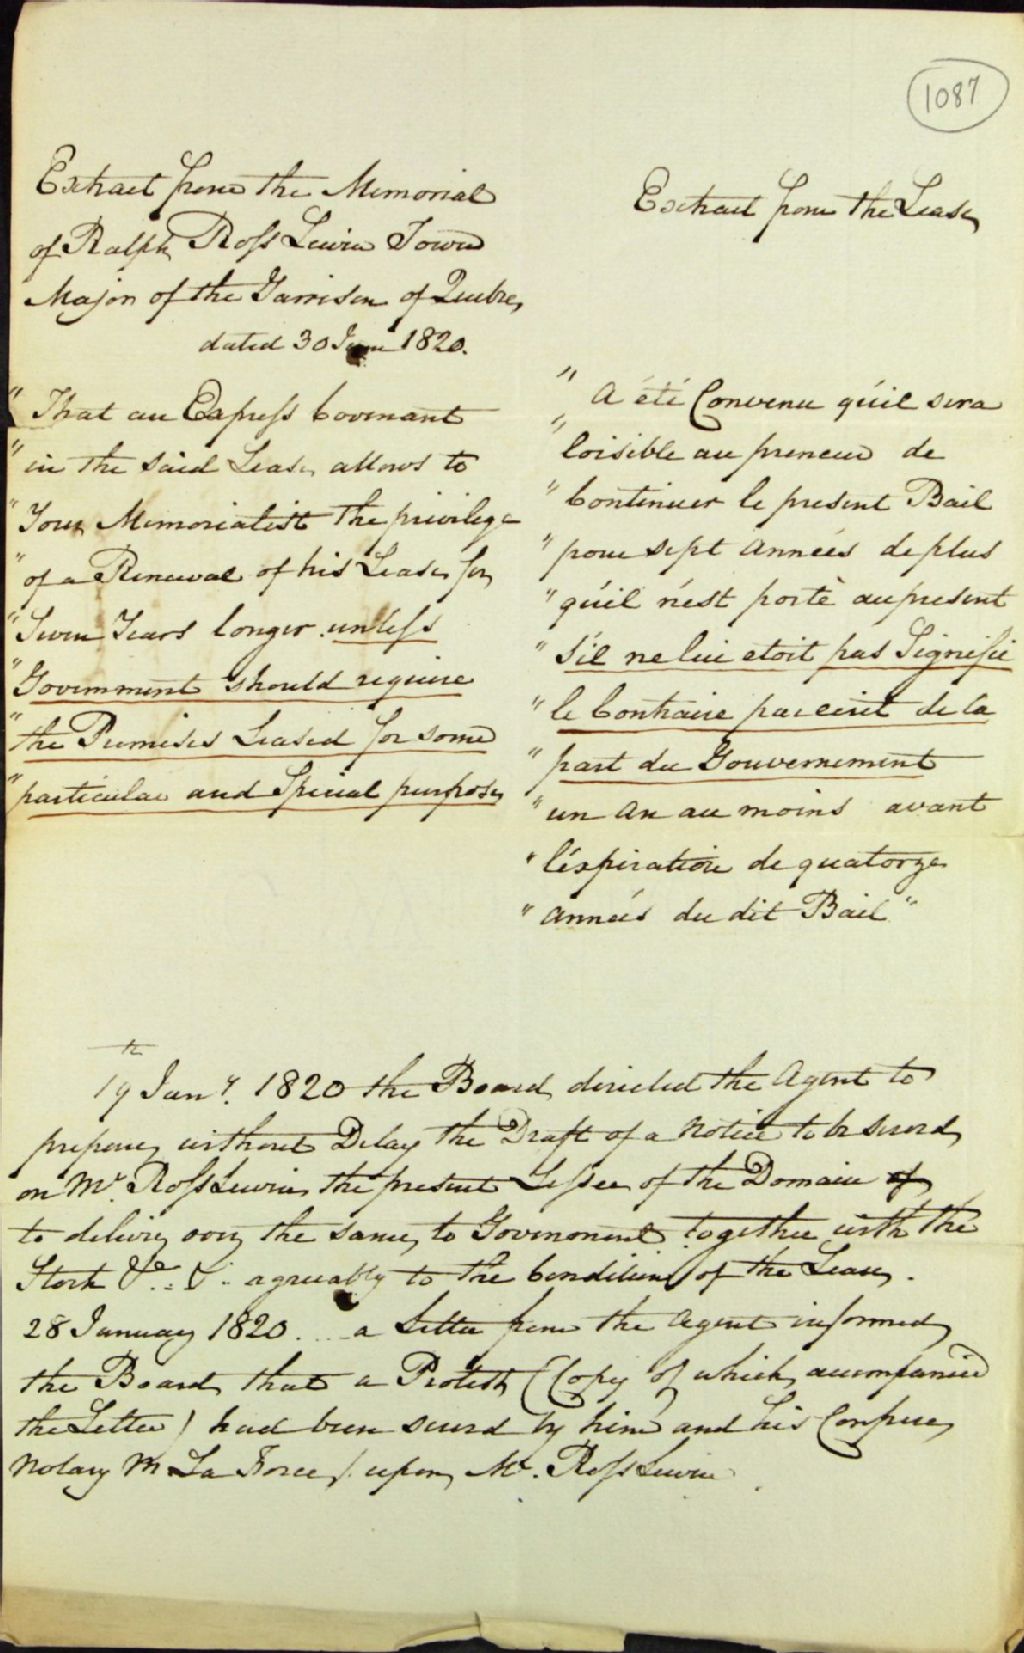 1087
Extract from the Memorial
of Ralph Ross Lewin Town
Major of the Garrison of Quebec,
dated 30 June 1820.
" That an Express Covenant
" in the said Lease, allows to
" Your Memorialist the privilege
" of a Renewal of his Lease for
" Seven Years longer unless
" Government should require
" the Premises Leased for some
" particular and Special purpose,
Extract from the Lease,
" A été Convenu qu'il sera
" loisible au preneur de
" Continuer le present Bail
" pour sept Années de plus
" qu'il n'est porté au present
" s'il ne lui etoit pas Signifié
" le Contraire par ecrit de la
" part du Gouvernement
" un An au moins avant
" l'éxpiration de quatorze
" Années du dit Bail "
19th Jany. 1820 the Board directed the Agent to
prepare, without Delay the Draft of a Notice to be served,
on Mr. Ross Lewin, the present Lessee of the Domain of
to deliver over the same, to Government together with the
Stock &c. &. agreeably to the Conditions of the Lease.
28 January 1820 ... a Letter from the Agent informed
the Board, that a Protest (Copy of which accompanied
the Letter) had been served by him and his Confrere,
Notary Mr La Force, upon, Mr. Ross Lewin.